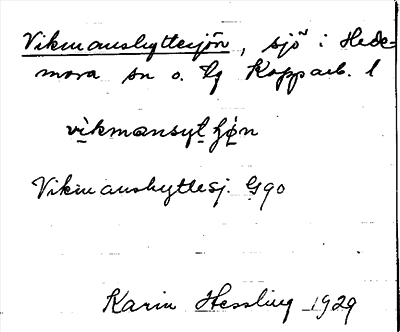 Vikmanshyttesjön, sjö i Hede-
mora sn o. tg Kopparb. l
vikmansyt ʃøn
Vikmanshyttesj. G90
Karin Hessling 1929